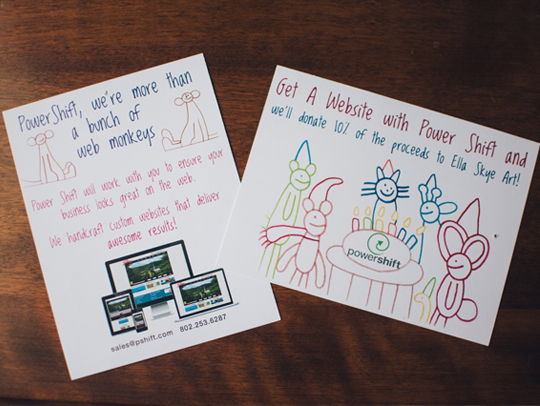 PowerShift, we're more than
a bunch of
web monkeys
Power Shift will work with you to ensure your
business looks great on the web.
We handcraft custom websites that deliver
awesome results!
sales@pshift.com 802.253.6287
Get A Website with Power Shift and
we'll donate 10% of the proceeds to Ella Skye Art!
powershift